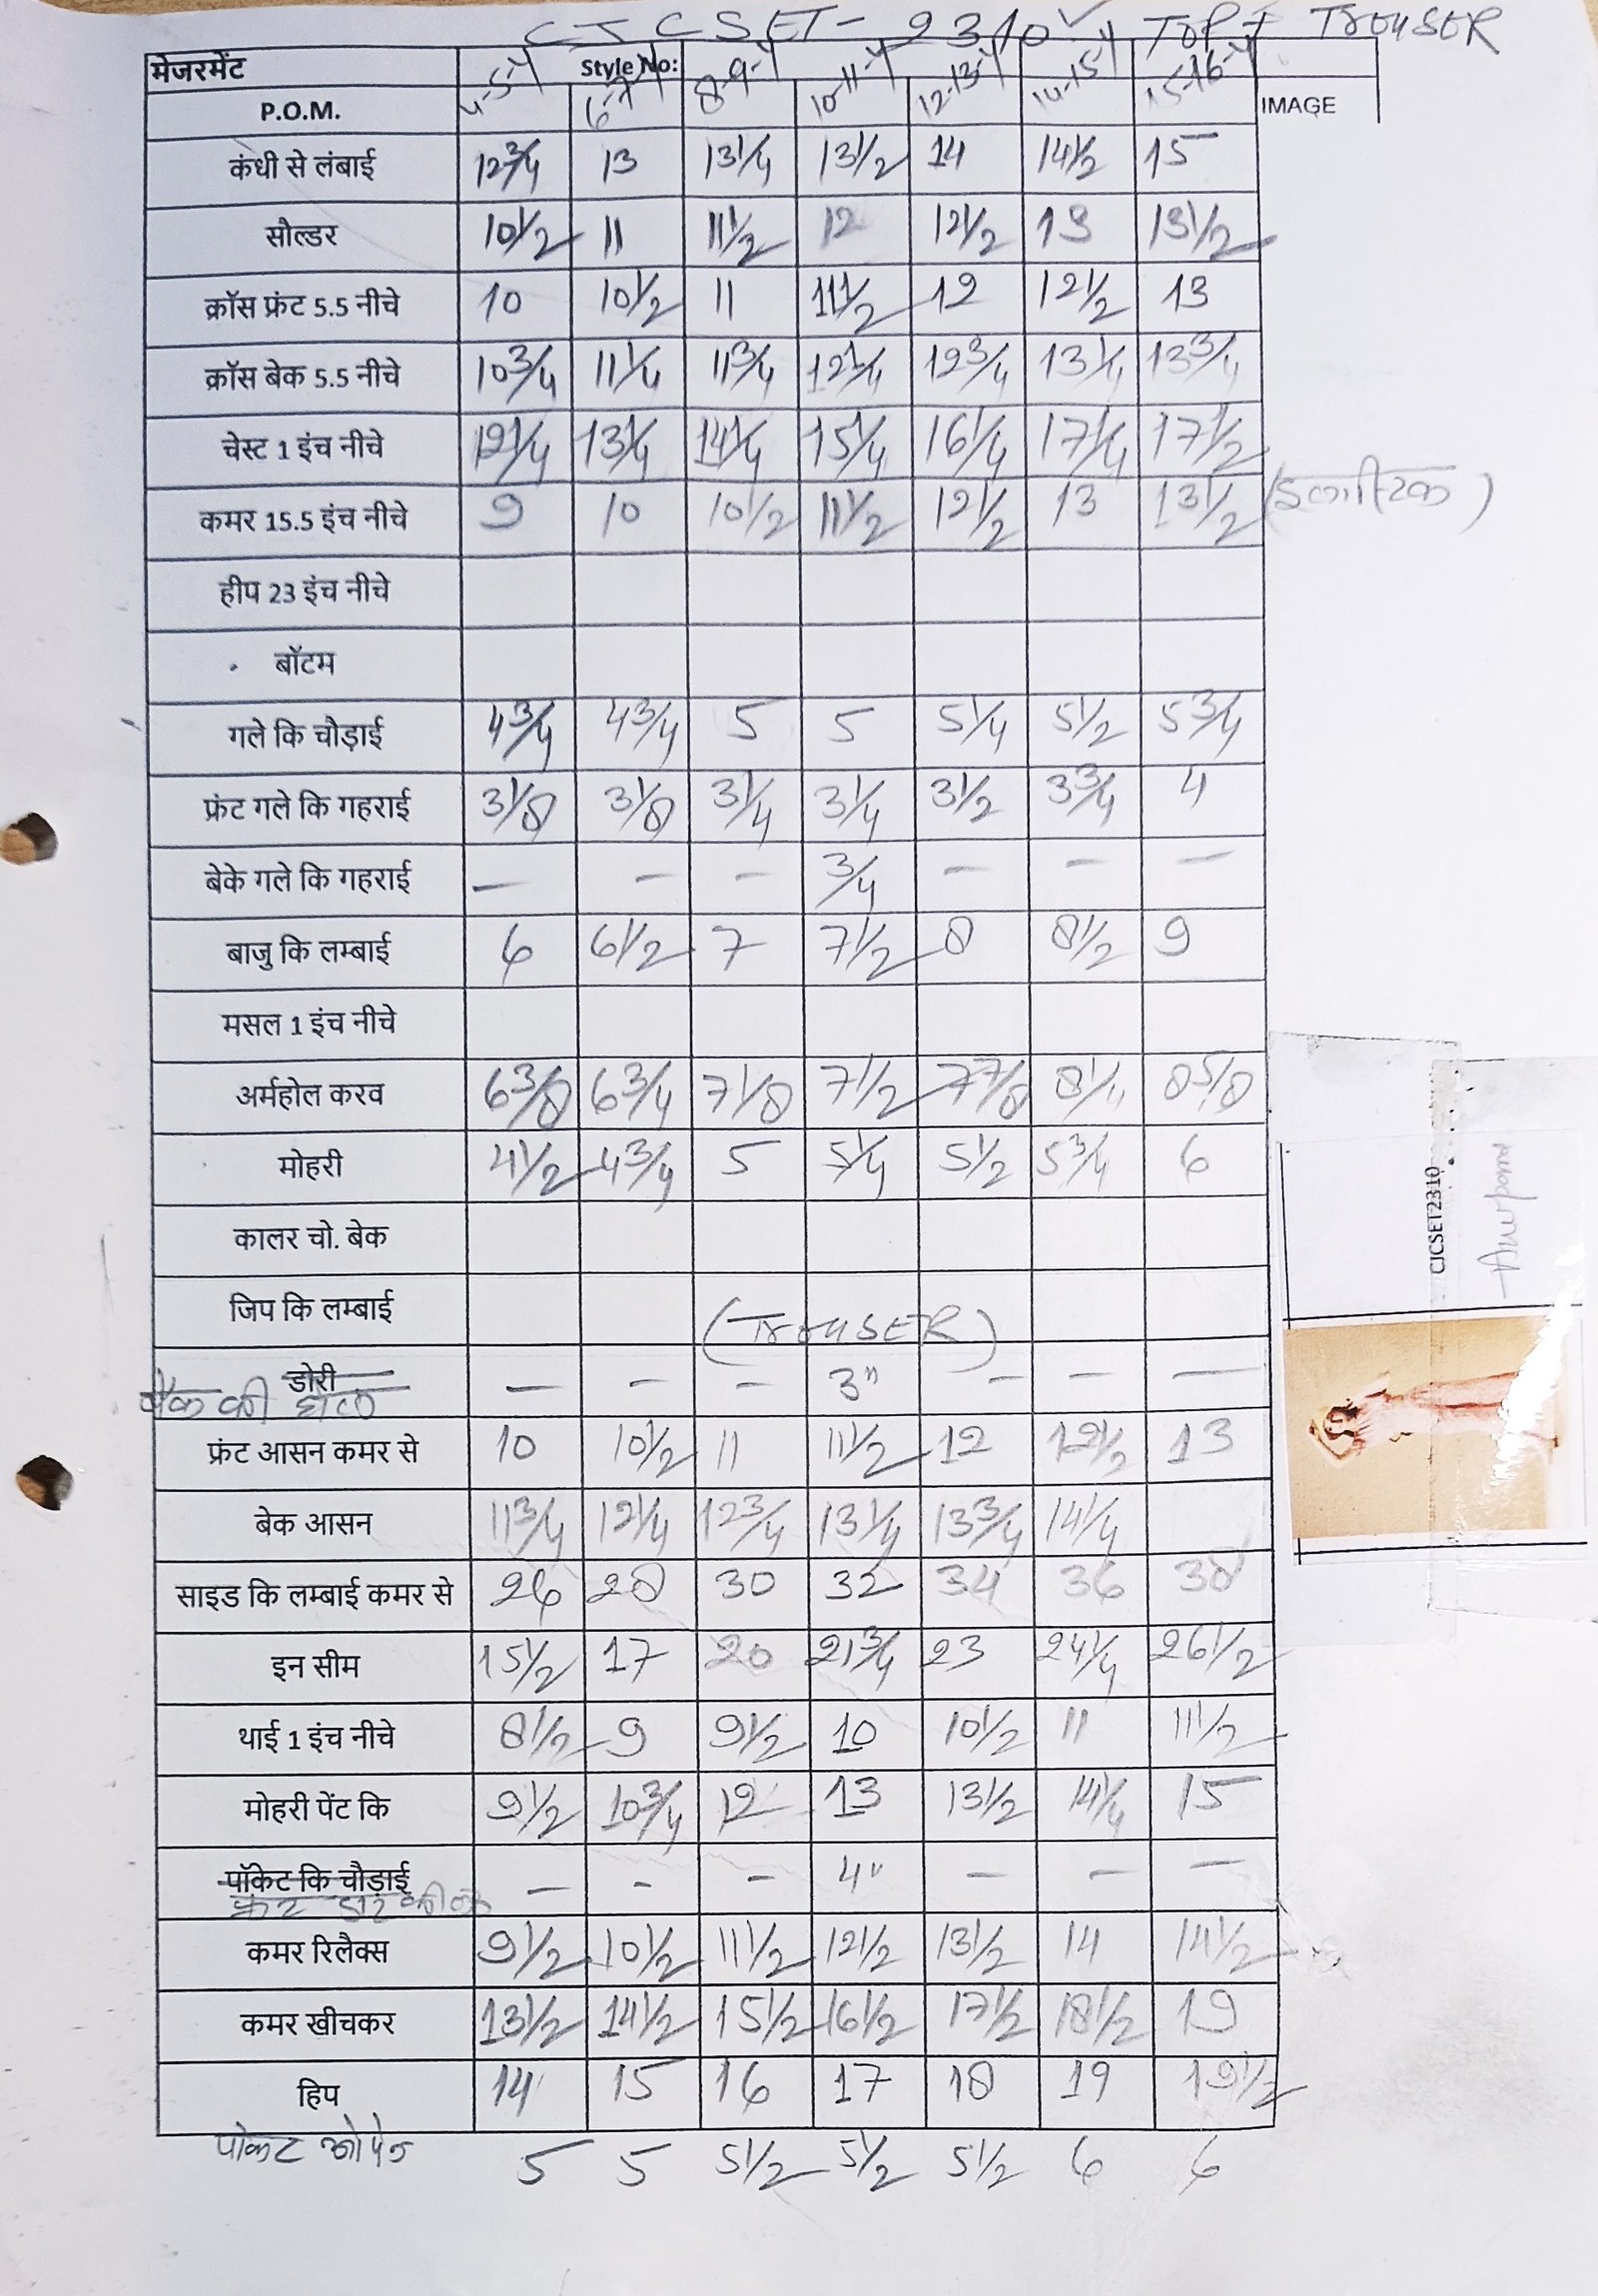 CJCSET-2310 ✓ TOP + TROUSER
मेजरमेंट Style No:
P.O.M. 4-5-Y 6-7-Y 8-9-Y 10-11-Y 12-13-Y 14-15-Y 15-16-Y IMAGE
कंधी से लंबाई 12 3/4 13 13 1/4 13 1/2 14 14 1/2 15
सौल्डर 10 1/2 11 11 1/2 12 12 1/2 13 13 1/2
क्रॉस फ्रंट 5.5 नीचे 10 10 1/2 11 11 1/2 12 12 1/2 13
क्रॉस बेक 5.5 नीचे 10 3/4 11 1/4 11 3/4 12 1/4 12 3/4 13 1/4 13 3/4
चेस्ट 1 इंच नीचे 12 1/4 13 1/4 14 1/4 15 1/4 16 1/4 17 1/4 17 1/2
कमर 15.5 इंच नीचे 9 10 10 1/2 11 1/2 12 1/2 13 13 1/2 (इलास्टिक)
हीप 23 इंच नीचे
बॉटम
गले कि चौड़ाई 4 3/4 4 3/4 5 5 5 1/4 5 1/2 5 3/4
फ्रंट गले कि गहराई 3 1/8 3 1/8 3 1/4 3 1/4 3 1/2 3 3/4 4
बेके गले कि गहराई — — — 3/4 — — —
बाजु कि लम्बाई 6 6 1/2 7 7 1/2 8 8 1/2 9
मसल 1 इंच नीचे
अर्महोल करव 6 3/8 6 3/4 7 1/8 7 1/2 7 7/8 8 1/4 8 5/8
मोहरी 4 1/2 4 3/4 5 5 1/4 5 1/2 5 3/4 6
कालर चो. बेक
जिप कि लम्बाई
(TROUSER)
डोरी — — — 3" — — —
बैक की
फ्रंट आसन कमर से 10 10 1/2 11 11 1/2 12 12 1/2 13
बेक आसन 11 3/4 12 1/4 12 3/4 13 1/4 13 3/4 14 1/4
साइड कि लम्बाई कमर से 26 28 30 32 34 36 38
इन सीम 15 1/2 17 20 21 3/4 23 24 1/4 26 1/2
थाई 1 इंच नीचे 8 1/2 9 9 1/2 10 10 1/2 11 11 1/2
मोहरी पेंट कि 9 1/2 10 3/4 12 13 13 1/2 14 1/4 15
पॉकेट कि चौड़ाई — — — 4" — — —
कमर रिलैक्स 9 1/2 10 1/2 11 1/2 12 1/2 13 1/2 14 14 1/2
कमर खीचकर 13 1/2 14 1/2 15 1/2 16 1/2 17 1/2 18 1/2 19
हिप 14 15 16 17 18 19 19 1/2
पोकेट ओपेन 5 5 5 1/2 5 1/2 5 1/2 6 6
CJCSET2310